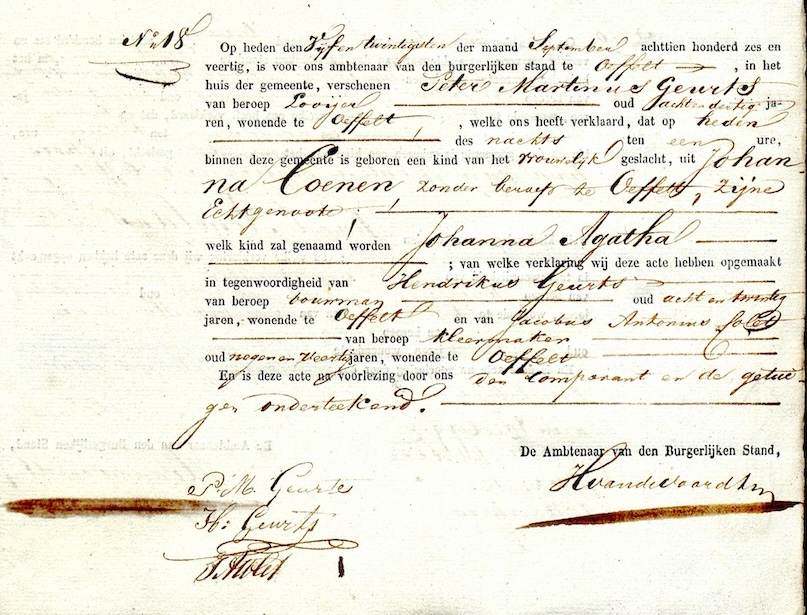 No 18
Op heden den Vyf en twintigsten der maand September achttien honderd zes en
veertig, is voor ons ambtenaar van den burgerlijken stand te Oeffelt, in het
huis der gemeente, verschenen Peter Martinus Geurts
van beroep Looijer oud acht en dertig ja-
ren, wonende te Oeffelt, welke ons heeft verklaard, dat op heden
des nachts ten een ure,
binnen deze gemeente is geboren een kind van het vrouwelijk geslacht, uit Johan-
na Coenen zonder beroep te Oeffelt, zijne
Echtgenoote
welk kind zal genaamd worden Johanna Agatha
; van welke verklaring wij deze acte hebben opgemaakt
in tegenwoordigheid van Hendrikus Geurts
van beroep bouwman oud acht en twintig
jaren, wonende te Oeffelt en van Jacobus Antonius
van beroep kleermaker
oud negen en veertig jaren, wonende te Oeffelt
En is deze acte na voorlezing door ons den Comparant en de getui-
gen onderteekend.
De Ambtenaar van den Burgerlijken Stand,
P M Geurts
H: Geurts